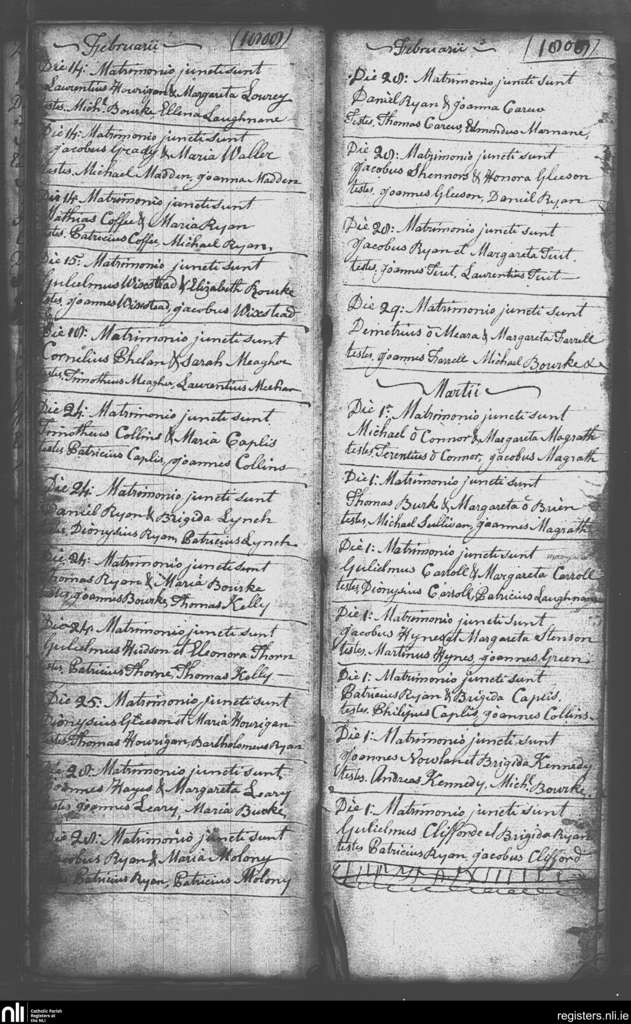 Februarii (1808)
Die 14: Matrimonio juncti sunt
Laurentius Hourigan & Margareta Lowrey
testes, Mich.l Bourke, Ellena Laughnane
Die 14: Matrimonio juncti sunt
Jacobus Grady & Maria Waller
testes, Michael Madden, Joanna Madden
Die 14. Matrimonio juncti sunt
Mathias Coffee & Maria Ryan
testes, Patricius Coffee, Michael Ryan,
Die 15: Matrimonio juncti sunt
Gulielmus Wixstead & Elizabeth Bourke
testes, Joannes Wixstead, Jacobus Wixstead
Die 18: Matrimonio juncti sunt
Cornelius Phelan & Sarah Meagher
testes, Timotheus Meagher, Laurentius Meehan
Die 24: Matrimonio juncti sunt
Timotheus Collins & Maria Caplis
testes Patricius Caplis, Joannes Collins
Die 24: Matrimonio juncti sunt
Daniel Ryan & Brigida Lynch
Dionysius Ryan, Patricius Lynch
Die 24: Matrimonio juncti sunt
Thomas Ryan & Maria Bourke
testes, Joannes Bourke, Thomas Kelly
Die 24: Matrimonio juncti sunt
Gulielmus Hudson et Eleonora Thorn
testes, Patricius Thorne, Thomas Kelly
Die 25: Matrimonio juncti sunt
Dionysius Gleeson et Maria Hourigan
testes Thomas Hourigan, Bartholomeus Ryan
Die 28: Matrimonio juncti sunt
Joannes Hayes & Margareta Leary
testes, Joannes Leary, Maria Burke,
Die 28: Matrimonio juncti sunt
Jacobus Ryan & Maria Molony
Patricius Ryan, Patricius Molony
Februarii (1808)
Die 28: Matrimonio juncti sunt
Daniel Ryan & Joanna Carew
Testes, Thomas Carew, Edmondus Marnane,
Die 28: Matrimonio juncti sunt
Jacobus Shennors & Honora Gleeson
testes, Joannes Gleeson, Daniel Ryan
Die 28: Matrimonio juncti sunt
Jacobus Ryan et Margareta Tuit.
testes, Joannes Tuit, Laurentius Tuit
Die 29: Matrimonio juncti sunt
Demetrius ò Meara & Margareta Farrell
testes, Joannes Farrell Michael Bourke &
Martii
Die 1: Matrimonio juncti sunt
Michael ò Connor & Margareta Magrath
testes, Terentius ò Connor, Jacobus Magrath
Die 1: Matrimonio juncti sunt
Thomas Burk & Margareta ò Brien
testes, Michael Sullivan, Joannes Magrath
Die 1: Matrimonio juncti sunt
Gulielmus Carroll & Margareta Carroll
testes, Dionysius Carroll, Patricius Laughnane
Die 1: Matrimonio juncti sunt
Jacobus Hynes et Margareta Stenson
testes, Martinus Hynes, Joannes Green
Die 1: Matrimonio juncti sunt
Patricius Ryan & Brigida Caplis,
testes, Philipus Caplis, Joannes Collins
Die 1: Matrimonio juncti sunt
Joannes Nowlan et Brigida Kennedy
testes, Andreas Kennedy, Mich.l Bourke
Die 1: Matrimonio juncti sunt
Gulielmus Clifford et Brigida Ryan
testes Patricius Ryan, Jacobus Clifford
nli Catholic Parish
Registers at
the NLI
registers.nli.ie